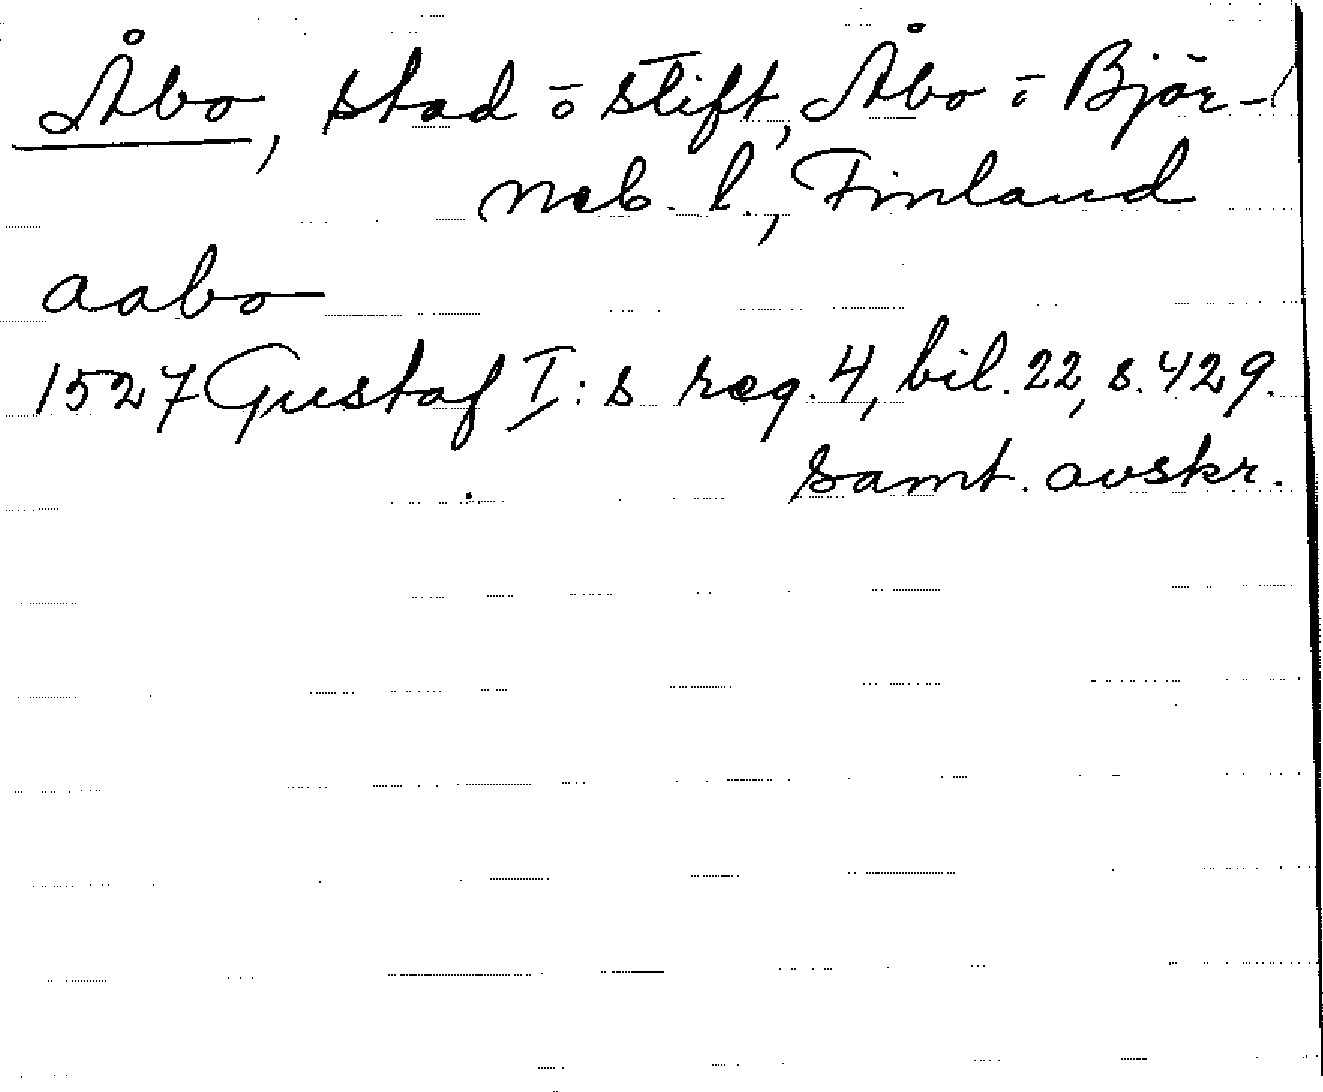 Åbo, stad o stift, Åbo o Björ-
neb. l., Finland
aabo
1527 Gustaf I:s reg. 4, bil. 22, s. 429.
samt. avskr.